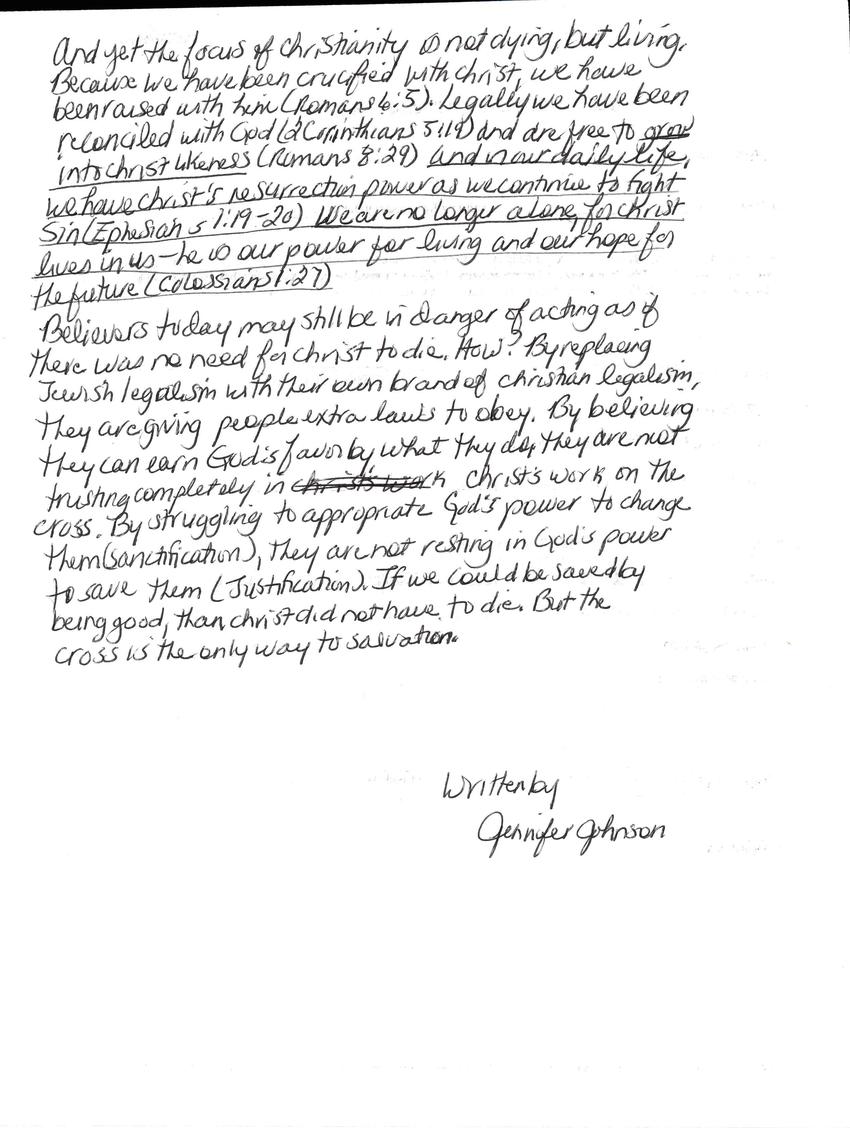 And yet the focus of christianity is not dying, but living.
Because we have been crucified with christ, we have
been raised with him (Romans 6:5). Legally we have been
reconciled with God (2 Corinthians 5:19) and are free to grow
into christ likeness (Romans 8:29) and in our daily life,
we have christ's resurrection power as we continue to fight
Sin (Ephesians 1:19-20) We are no longer alone, for christ
lives in us - he is our power for living and our hope for
the future (Colossians 1:27)
Believers today may still be in danger of acting as if
there was no need for christ to die. How? By replacing
Jewish legalism with their own brand of christian legalism,
they are giving people extra laws to obey. By believing
they can earn God's favor by what they do, they are not
trusting completely in christ's work christ's work on the
cross. By struggling to appropriate God's power to change
them (sanctification), they are not resting in God's power
to save them (Justification). If we could be saved by
being good, than christ did not have to die. But the
cross is the only way to salvation.
Written by
Jennifer Johnson